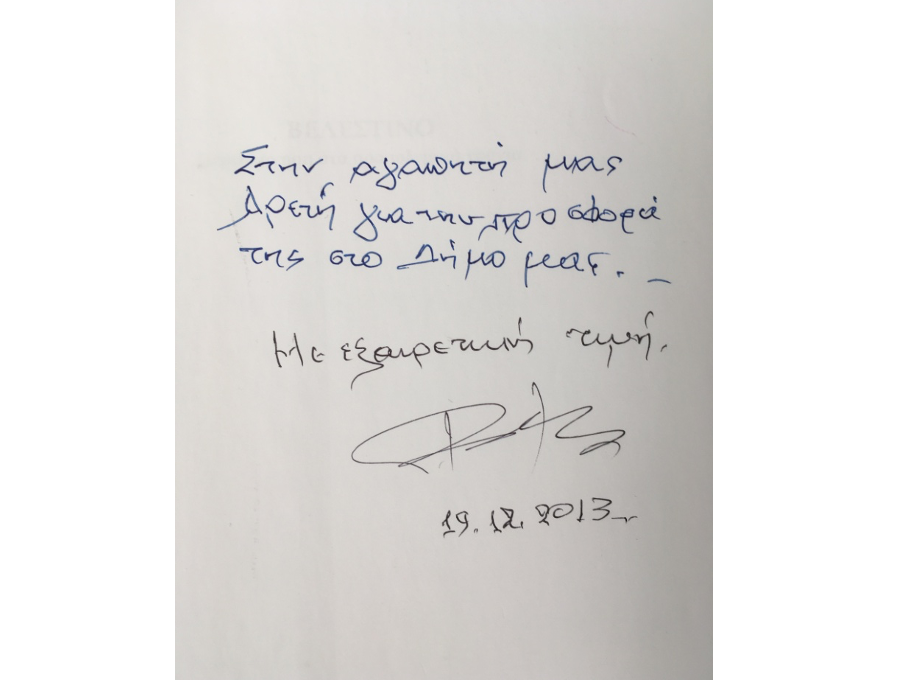 ΒΕΛΕΣΤΙΝΟ
Στην αγαπητή μας
Αρετή για την προσφορά
της στο Δήμο μας. _
Με εξαιρετική τιμή.
19.12.2013